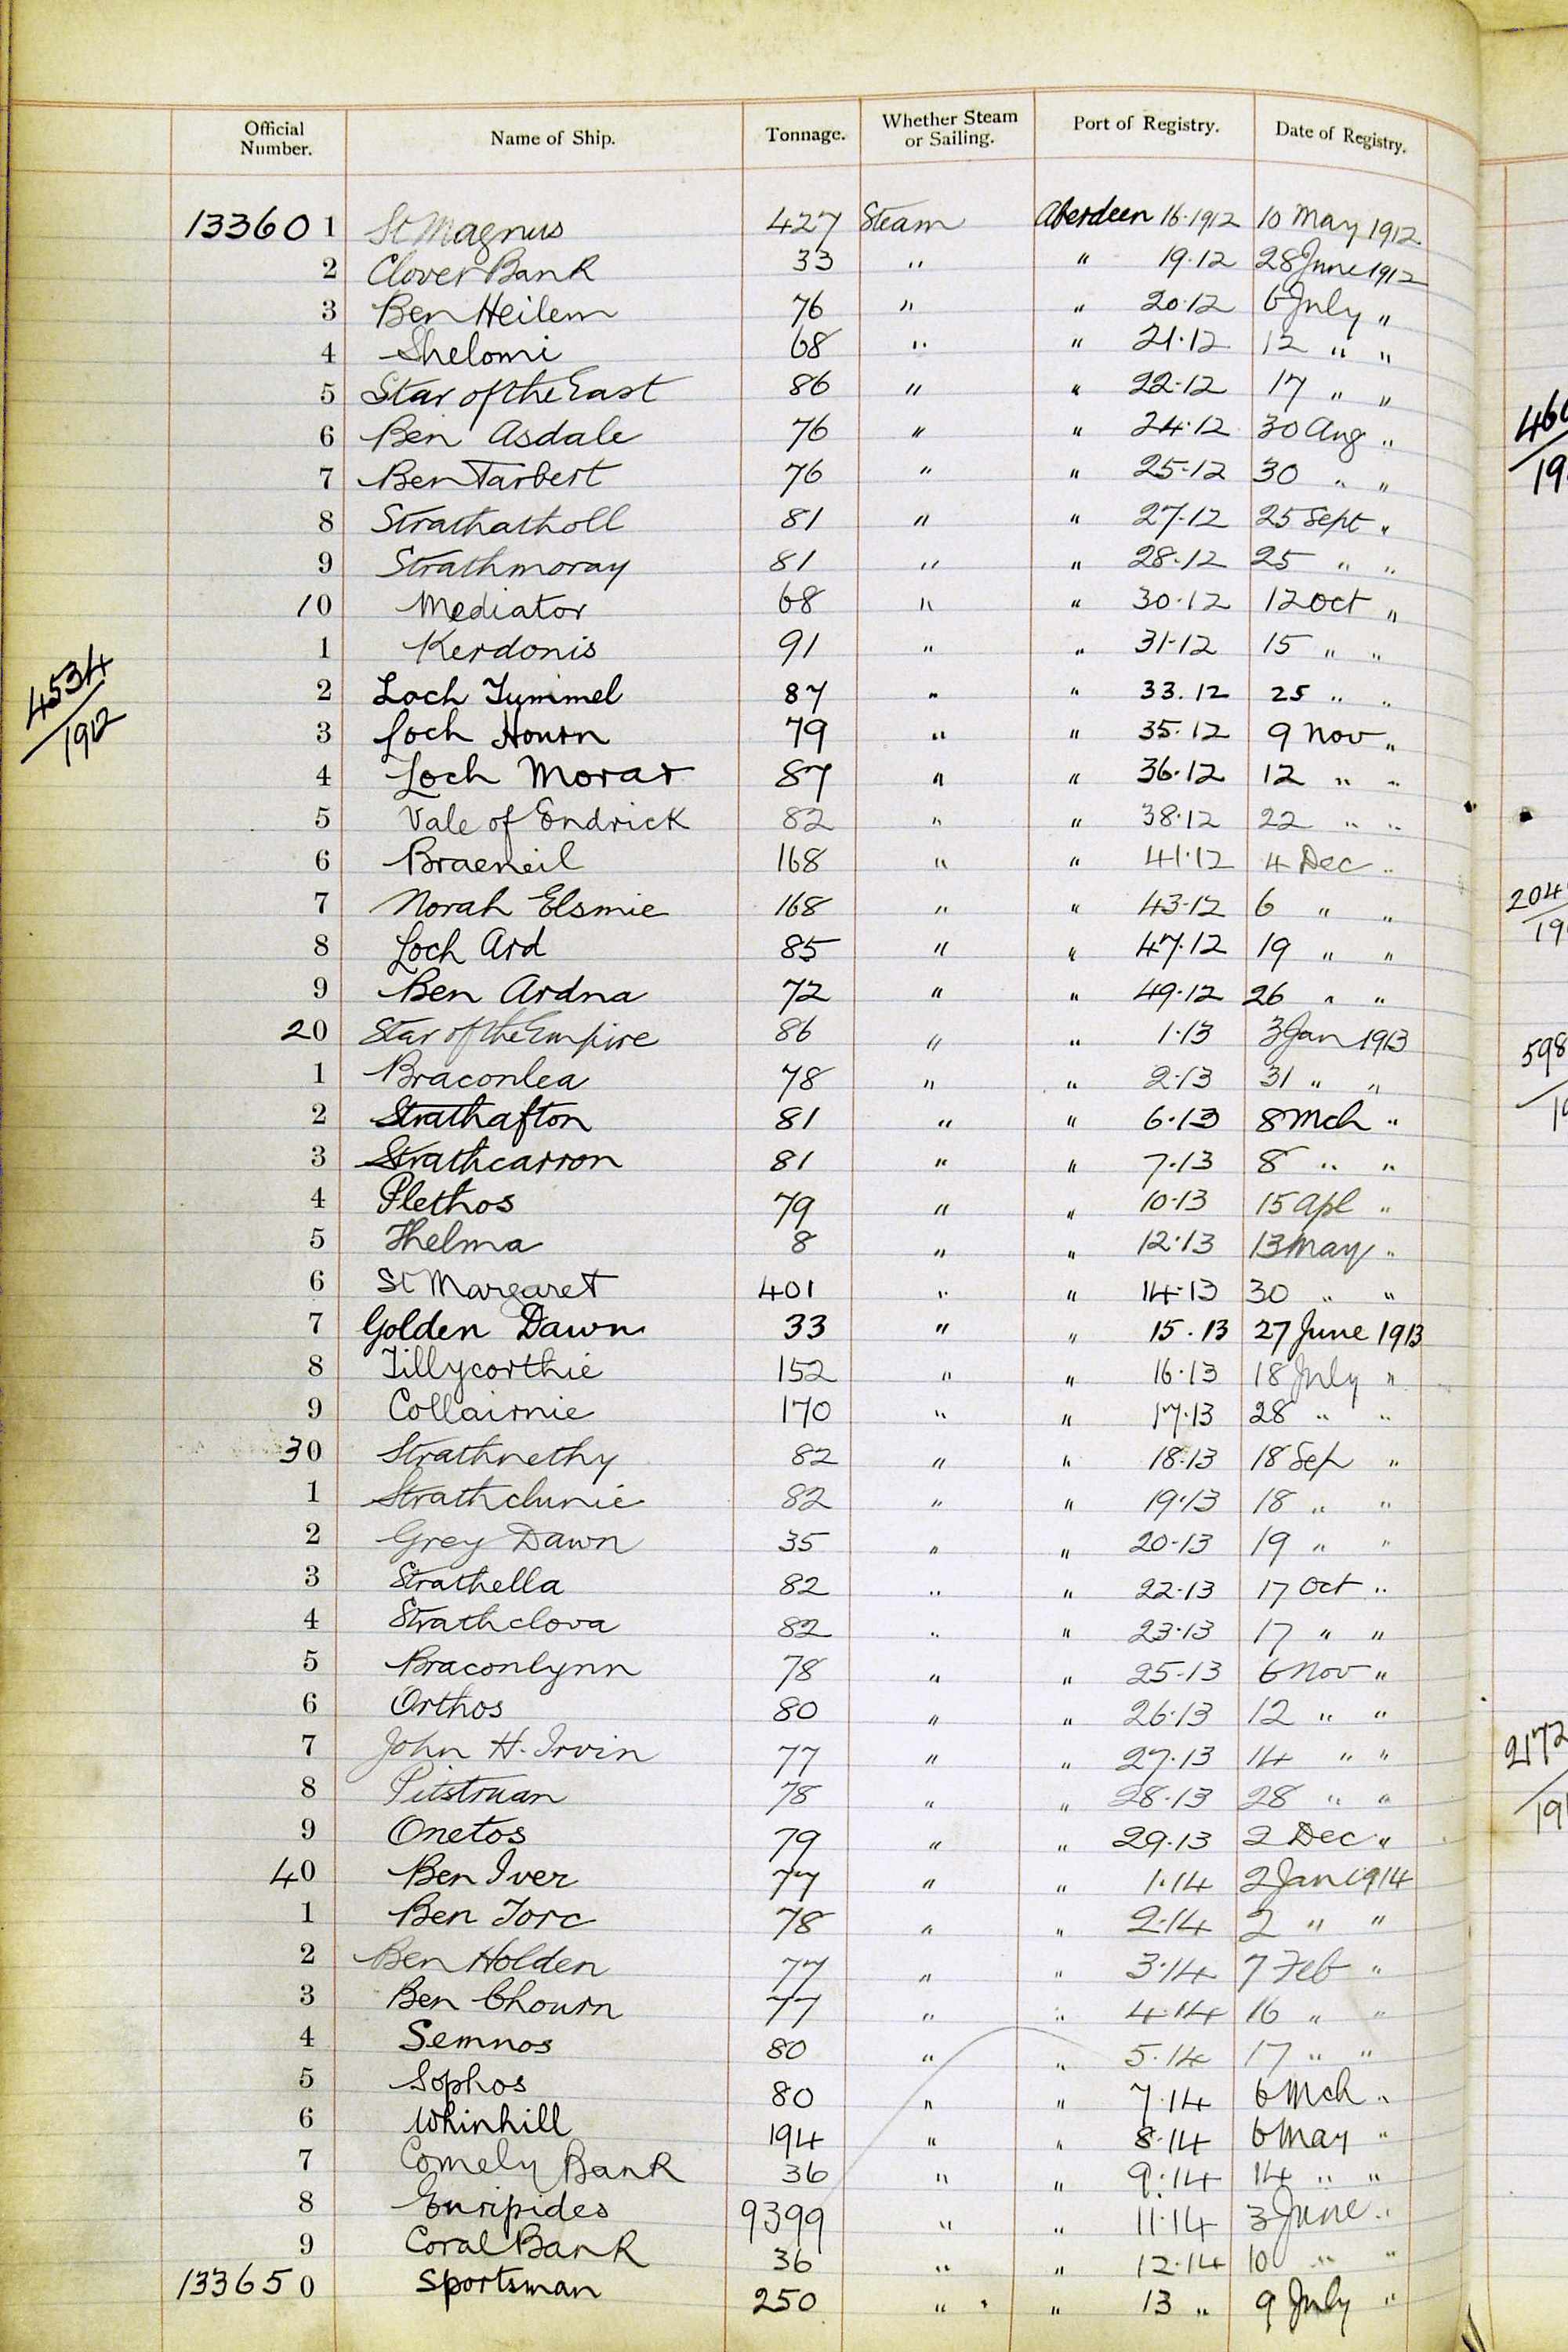 Official Number. Name of Ship. Tonnage. Whether Steam or Sailing. Port of Registry. Date of Registry.
133601 St Magnus 427 Steam Aberdeen 16.1912 10 May 1912
2 Clover Bank 33 " " 19.12 28 June 1912
3 Ben Heilem 76 " " 20.12 6 July "
4 Shelomi 68 " " 21.12 12 " "
5 Star of the East 86 " " 22.12 17 " "
6 Ben Asdale 76 " " 24.12 30 Aug "
7 Ben Tarbert 76 " " 25.12 30 " "
8 Strathatholl 81 " " 27.12 25 Sept "
9 Strathmoray 81 " " 28.12 25 " "
10 Mediator 68 " " 30.12 12 Oct "
1 Kerdonis 91 " " 31.12 15 " "
4534/1912
2 Loch Tummel 87 " " 33.12 25 " "
3 Loch Hourn 79 " " 35.12 9 Nov "
4 Loch Morar 87 " " 36.12 12 " "
5 Vale of Endrick 82 " " 38.12 22 " "
6 Braeneil 168 " " 41.12 4 Dec "
7 Norah Elsmie 168 " " 43.12 6 " "
8 Loch Ard 85 " " 47.12 19 " "
9 Ben Ardna 72 " " 49.12 26 " "
20 Star of the Empire 86 " " 1.13 3 Jan 1913
1 Braconlea 78 " " 2.13 31 " "
2 Strathafton 81 " " 6.13 8 Mch "
3 Strathcarron 81 " " 7.13 8 " "
4 Plethos 79 " " 10.13 15 Apl "
5 Thelma 8 " " 12.13 13 May "
6 St Margaret 401 " " 14.13 30 " "
7 Golden Dawn 33 " " 15.13 27 June 1913
8 Tillycorthie 152 " " 16.13 18 July "
9 Collairnie 170 " " 17.13 28 " "
30 Strathnethy 82 " " 18.13 18 Sep "
1 Strathclunie 82 " " 19.13 18 " "
2 Grey Dawn 35 " " 20.13 19 " "
3 Strathella 82 " " 22.13 17 Oct "
4 Strathclova 82 " " 23.13 17 " "
5 Braconlynn 78 " " 25.13 6 Nov "
6 Orthos 80 " " 26.13 12 " "
7 John H. Irvin 77 " " 27.13 14 " "
8 Pitstruan 78 " " 28.13 28 " "
9 Onetos 79 " " 29.13 2 Dec "
40 Ben Iver 77 " " 1.14 2 Jan 1914
1 Ben Torc 78 " " 2.14 2 " "
2 Ben Holden 77 " " 3.14 7 Feb "
3 Ben Chourn 77 " " 4.14 16 " "
4 Semnos 80 " " 5.14 17 " "
5 Sophos 80 " " 7.14 6 Mch "
6 Whinhill 194 " " 8.14 6 May "
7 Comely Bank 36 " " 9.14 14 " "
8 Euripides 9399 " " 11.14 3 June "
9 Coral Bank 36 " " 12.14 10 " "
133650 Sportsman 250 " " 13 " 9 July "